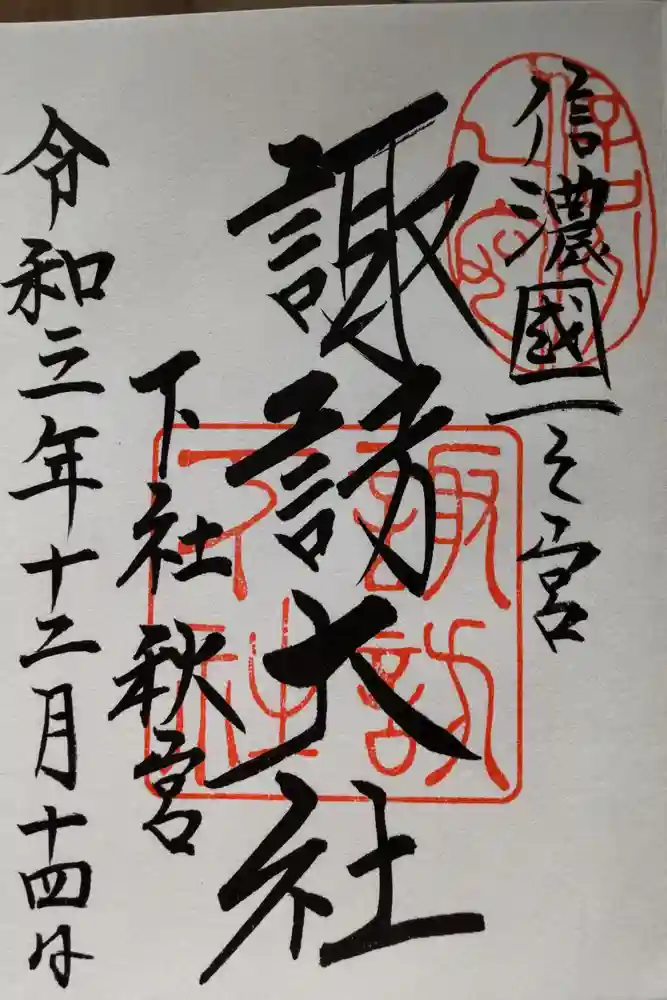 信濃國一之宮
諏訪大社
下社秋宮
令和三年十二月十四日
諏訪
下社